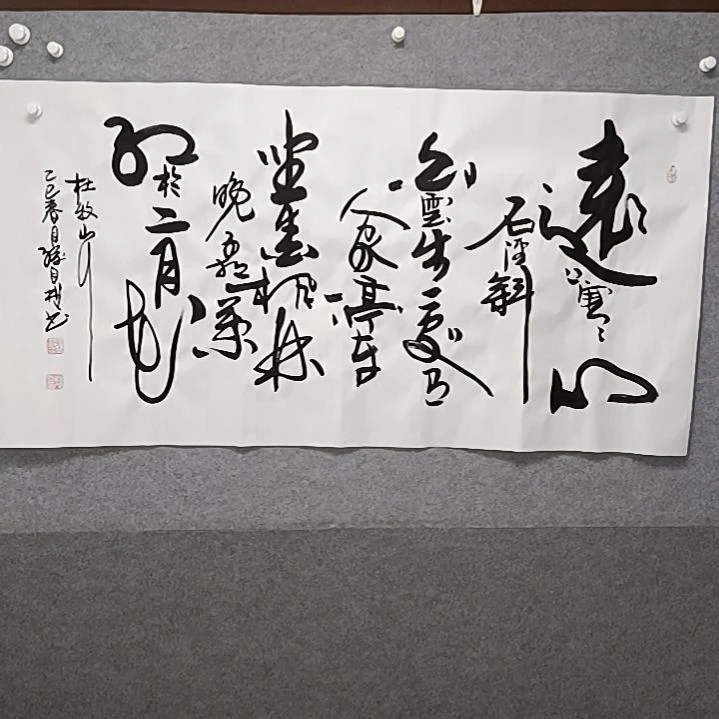 遠上寒山
石徑斜
白雲生處有
人家停車
坐愛楓林
晚霜葉
紅於二月花
杜牧山行
乙巳春月